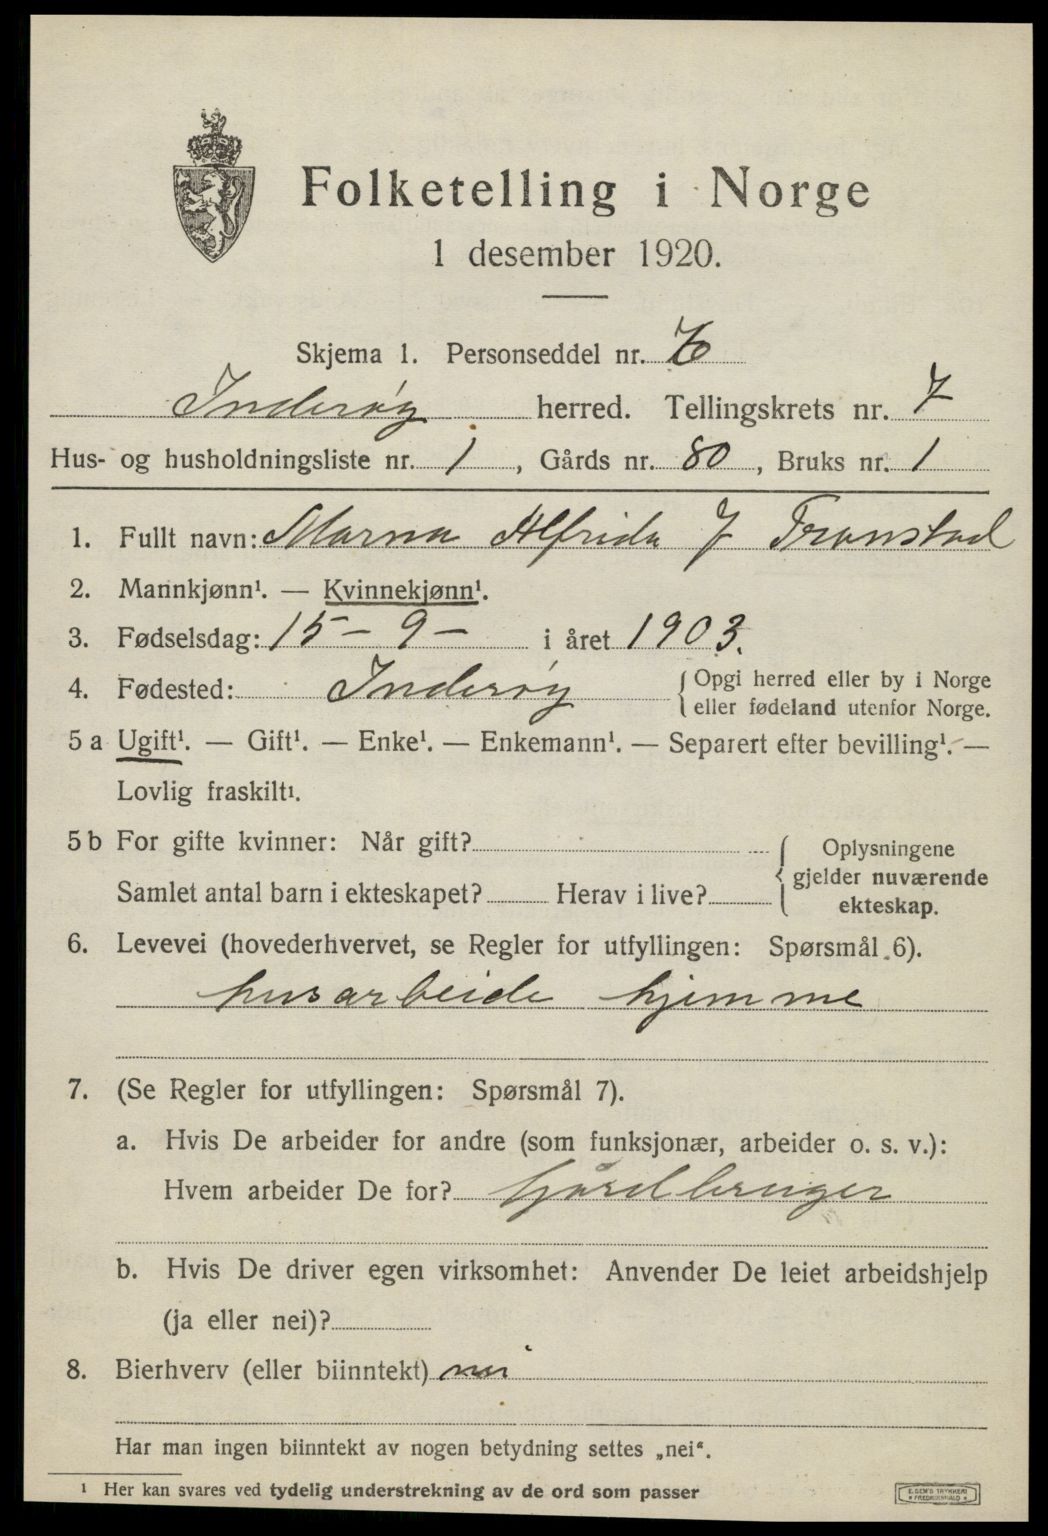 Folketelling i Norge
1 desember 1920.
Skjema 1. Personseddel nr.
Inderøy herred. Tellingskrets nr. 7
Hus- og husholdningsliste nr. 1, Gårds nr. 80, Bruks nr. 1
1. Fullt navn: Marna Alfrida J Tronstad
2. Mannkjønn¹. — Kvinnekjønn¹.
3. Fødselsdag: 15 - 9 - i året 1903.
4. Fødested: Inderøy { Opgi herred eller by i Norge
eller fødeland utenfor Norge.
5 a Ugift¹. — Gift¹. — Enke¹. — Enkemann¹. — Separert efter bevilling¹. —
Lovlig fraskilt¹.
5 b For gifte kvinner: Når gift? { Oplysningene
gjelder nuværende
Samlet antal barn i ekteskapet? Herav i live?
ekteskap.
6. Levevei (hovederhvervet, se Regler for utfyllingen: Spørsmål 6).
husarbeide hjemme
7. (Se Regler for utfyllingen: Spørsmål 7).
a. Hvis De arbeider for andre (som funksjonær, arbeider o. s. v.):
Hvem arbeider De for? Gårdbruger
b. Hvis De driver egen virksomhet: Anvender De leiet arbeidshjelp
(ja eller nei)?
8. Bierhverv (eller biinntekt) nei
Har man ingen biinntekt av nogen betydning settes „nei".
¹ Her kan svares ved tydelig understrekning av de ord som passer